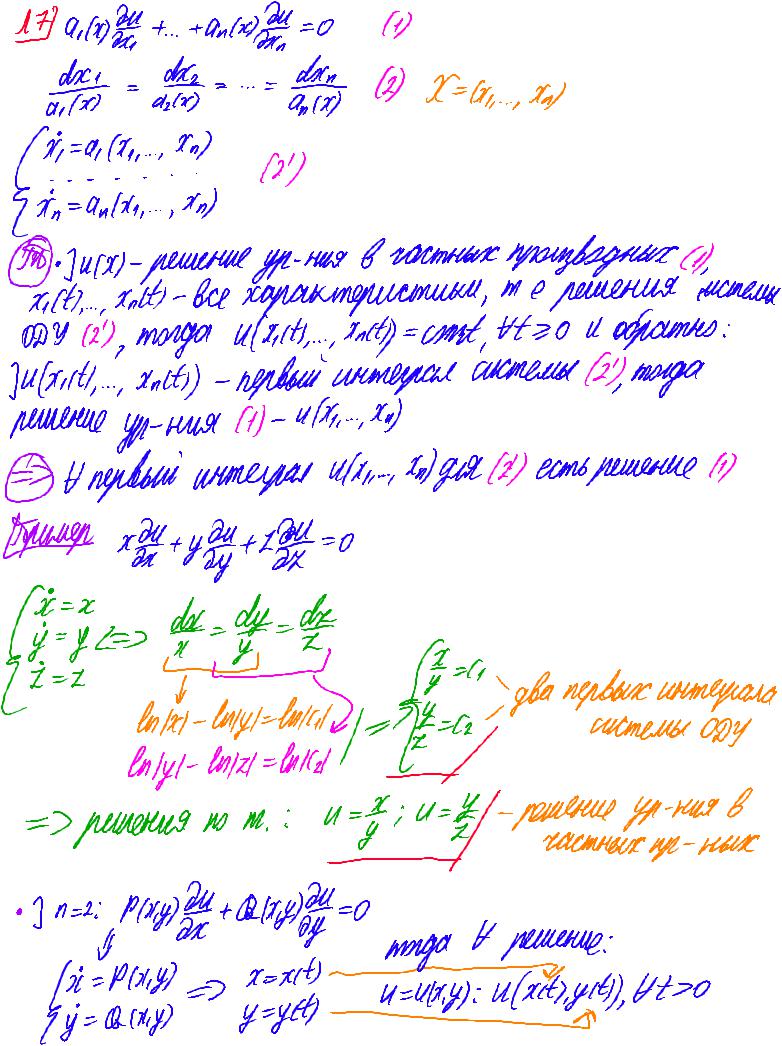 17) a₁(x) ∂u/∂x₁ + ... + aₙ(x) ∂u/∂xₙ = 0 (1)
dx₁/a₁(x) = dx₂/a₂(x) = ... = dxₙ/aₙ(x) (2) X = (x₁,..., xₙ)
{ ẋ₁ = a₁(x₁,..., xₙ)
- - - - - - - - - (2')
ẋₙ = aₙ(x₁,..., xₙ)
• ] u(x) – решение ур-ния в частных производных (1),
x₁(t),..., xₙ(t) – все характеристики, т е решения системы
ОДУ (2'), тогда u(x₁(t),..., xₙ(t)) = const, ∀t ≥ 0 и обратно:
] u(x₁(t),..., xₙ(t)) – первый интеграл системы (2'), тогда
решение ур-ния (1) – u(x₁,..., xₙ)
=> ∀ первый интеграл u(x₁,..., xₙ) для (2') есть решение (1)
Пример x ∂u/∂x + y ∂u/∂y + z ∂u/∂z = 0
{ ẋ = x
ẏ = y <=> dx/x = dy/y = dz/z
ż = z
ln|x| – ln|y| = ln|c₁|
ln|y| – ln|z| = ln|c₂|
=> { x/y = c₁
y/z = c₂
два первых интеграла
системы ОДУ
=> решения по т.: u = x/y ; u = y/z – решение ур-ния в
частных пр-ных
• ] n=2: P(x,y) ∂u/∂x + Q(x,y) ∂u/∂y = 0
тогда ∀ решение:
{ ẋ = P(x,y) => x = x(t) u = u(x,y): u(x(t), y(t)), ∀t > 0
ẏ = Q(x,y) y = y(t)